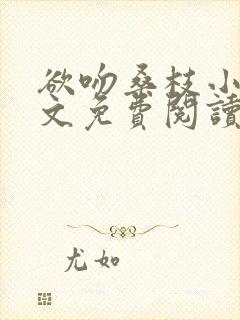 欲吻桑枝小
文免費閱讀
尤如